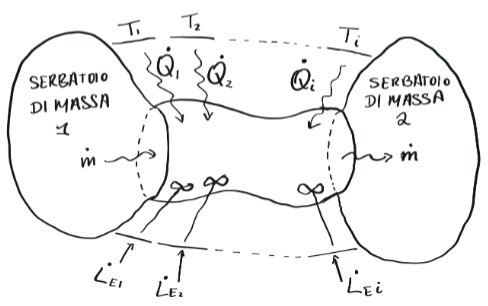 T₁ T₂ Tᵢ
Q̇₁ Q̇₂ Q̇ᵢ
SERBATOIO
DI MASSA
1
SERBATOIO
DI MASSA
2
ṁ
ṁ
L̇E1 L̇E2 L̇Ei